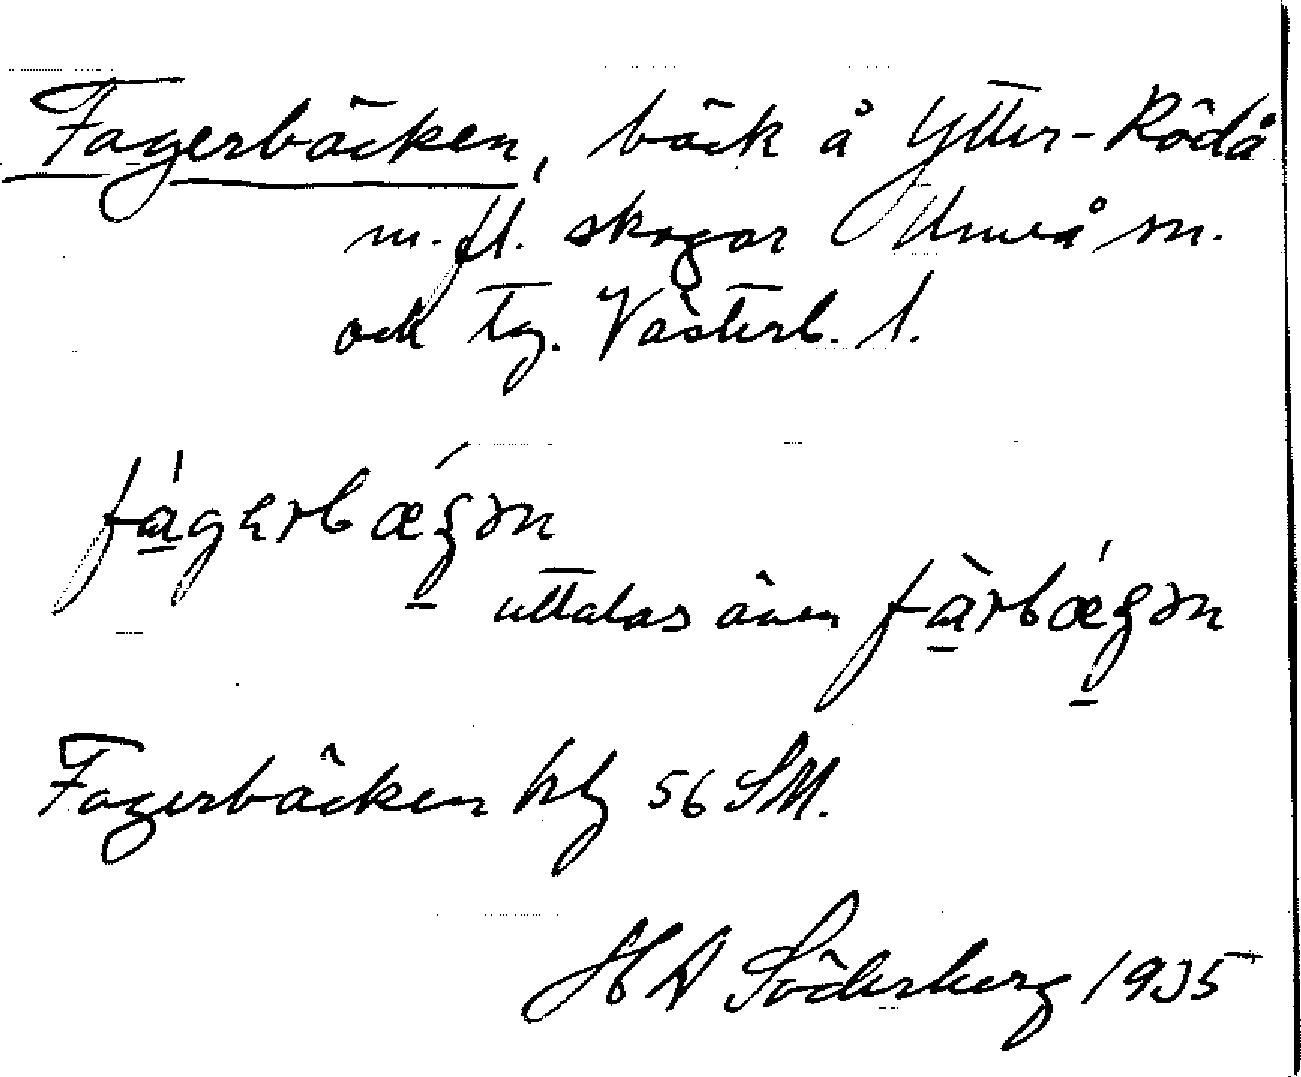 Fagerbäcken, bäck å Ytter-Rödå
m. fl. skogar Umeå sn.
och tg. Västerb. l.
fágerbægən
uttalas även fàrbǽgən
Fagerbäcken kbl 56 SM.
H A Söderberg 1935